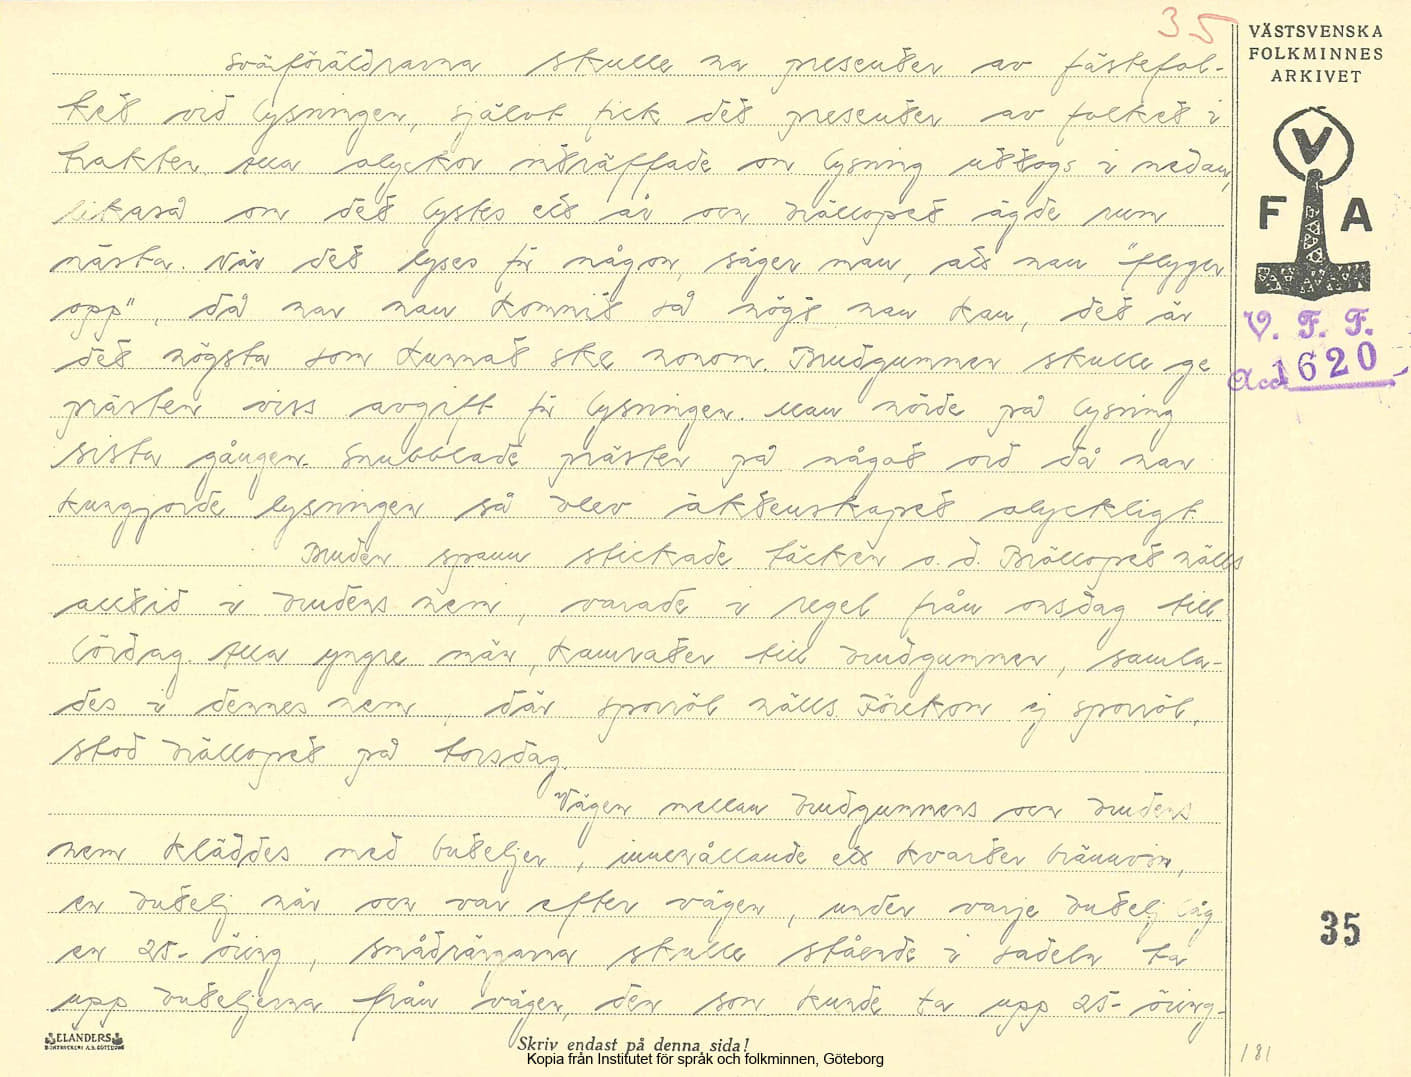 35
VÄSTSVENSKA
FOLKMINNES
ARKIVET
V
F A
V. F. F.
Acc. 1620
svärföräldrarna skulle ha presenter av fästefol-
ket vid lysningen, självt fick det presenter av folket i
trakten. Alla olyckor inträffade om lysning uttogs i nedan,
likaså om det lystes ett år och bröllopet ägde rum
nästa. När det lyses för någon, säger man, att han "flyger
opp", då har han kommit så högt han kan, det är
det högsta som kunnat ske honom. Brudgummen skulle ge
prästen viss avgift för lysningen. Man hörde på lysning
sista gången. Snubblade prästen på något ord då han
kungjorde lysningen så blev äktenskapet olyckligt.
Bruden spann stickade täcken o.d. Bröllopet hölls
alltid i brudens hem, varade i regel från onsdag till
lördag. Alla yngre män, kamrater till brudgummen, samla-
des i dennes hem, där sporröl hölls. Förekom ej sporröl,
stod bröllopet på torsdag.
Vägen mellan brudgummens och brudens
hem kläddes med buteljer, innehållande ett kvarter brännvin,
en butelj här och var efter vägen, under varje butelj låg
en 25-öring, smådrängarna skulle stående i sadeln ta
upp buteljerna från vägen, den som kunde ta upp 25-öring-
35
ELANDERS
BOKTRYCKERI A.B. GÖTEBORG
Skriv endast på denna sida!
Kopia från Institutet för språk och folkminnen, Göteborg
181